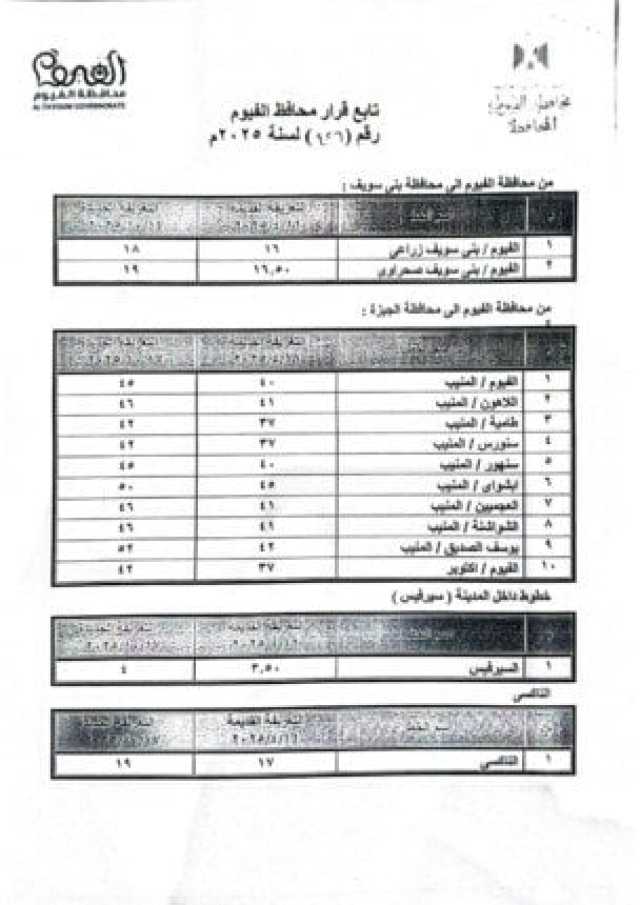 الفيوم
محافظة الفيوم
AL FAYOUM GOVERNORATE
محافظة الفيوم
المحافظ
تابع قرار محافظ الفيوم
رقم ( ) لسنة ٢٠٢٥م
من محافظة الفيوم الى محافظة بنى سويف :
م اسم الخط التعريفة القديمة التعريفة الجديدة
١ الفيوم / بنى سويف زراعى ١٦ ١٨
٢ الفيوم / بنى سويف صحراوى ١٦,٥٠ ١٩
من محافظة الفيوم الى محافظة الجيزة :
١ الفيوم / المنيب ٤٠ ٤٥
٢ اللاهون / المنيب ٤١ ٤٦
٣ طامية / المنيب ٣٧ ٤٢
٤ سنورس / المنيب ٣٧ ٤٢
٥ سنهور / المنيب ٤٠ ٤٥
٦ ابشواى / المنيب ٤٥ ٥٠
٧ العجميين / المنيب ٤١ ٤٦
٨ الشواشنة / المنيب ٤١ ٤٦
٩ يوسف الصديق / المنيب ٤٢ ٥٢
١٠ الفيوم / اكتوبر ٣٧ ٤٢
خطوط داخل المدينة ( سيرفيس )
التعريفة القديمة التعريفة الجديدة
١ السيرفيس ٣,٥٠ ٤
التاكسى
م اسم الخط التعريفة القديمة التعريفة الجديدة
١ التاكسى ١٧ ١٩